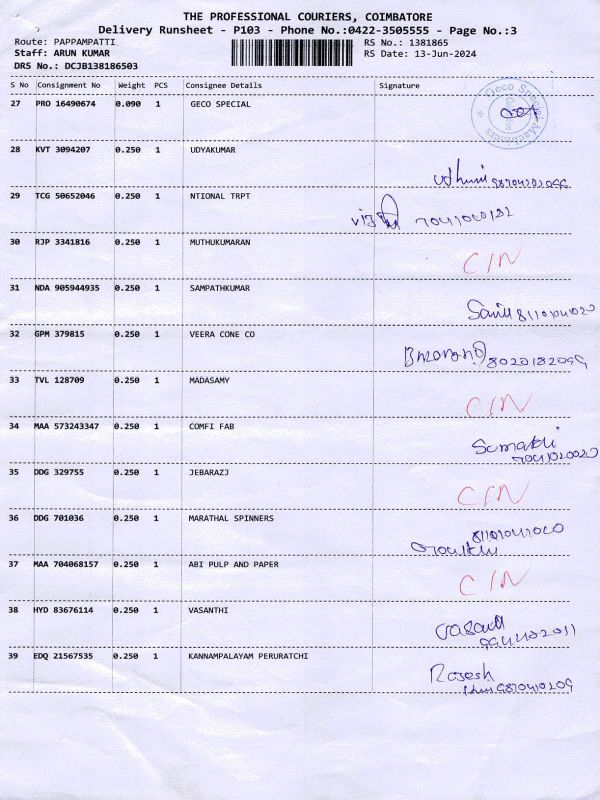 THE PROFESSIONAL COURIERS, COIMBATORE
Delivery Runsheet - P103 - Phone No.:0422-3505555 - Page No.:3
Route: PAPPAMPATTI RS No.: 1381865
Staff: ARUN KUMAR RS Date: 13-Jun-2024
DRS No.: DCJB138186503
S No Consignment No Weight PCS Consignee Details Signature
27 PRO 16490674 0.090 1 GECO SPECIAL
28 KVT 3094207 0.250 1 UDYAKUMAR
29 TCG 50652046 0.250 1 NTIONAL TRPT
30 RJP 3341816 0.250 1 MUTHUKUMARAN C/N
31 NDA 905944935 0.250 1 SAMPATHKUMAR
32 GPM 379815 0.250 1 VEERA CONE CO
33 TVL 128709 0.250 1 MADASAMY C/N
34 MAA 573243347 0.250 1 COMFI FAB
35 DDG 329755 0.250 1 JEBARAZJ C/N
36 DDG 701036 0.250 1 MARATHAL SPINNERS
37 MAA 704068157 0.250 1 ABI PULP AND PAPER C/N
38 HYD 83676114 0.250 1 VASANTHI
39 EDQ 21567535 0.250 1 KANNAMPALAYAM PERURATCHI Rajesh